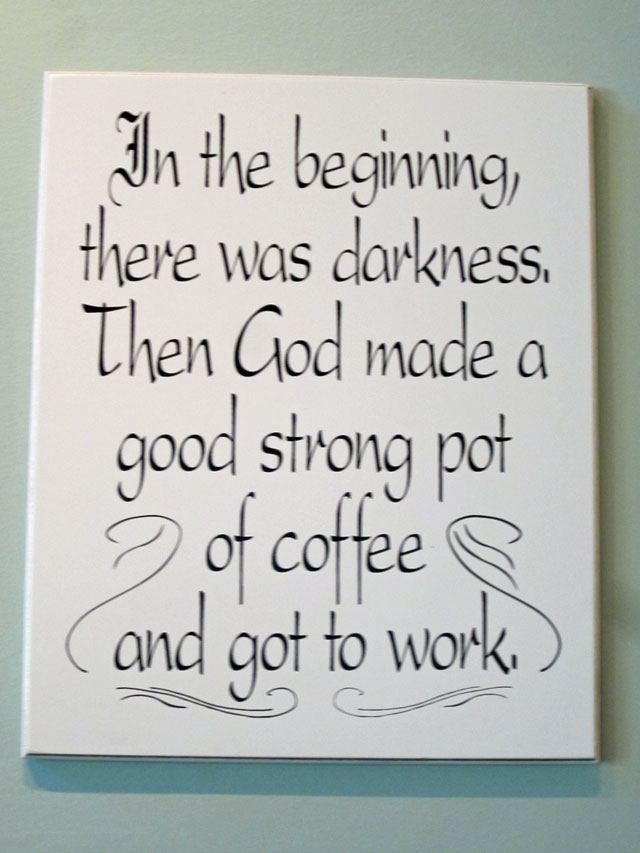 In the beginning,
there was darkness.
Then God made a
good strong pot
of coffee
and got to work.